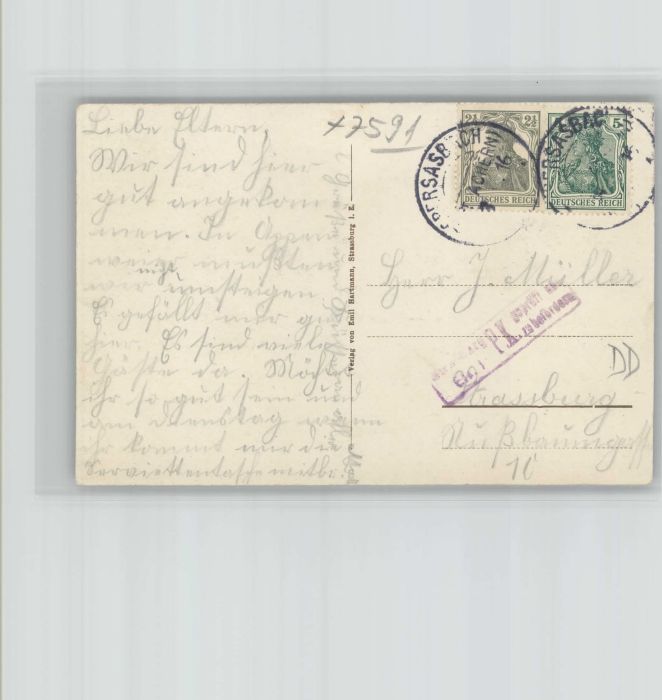 Liebe Eltern,
Wir sind hier
gut angekom
men. In Appen
weier mußten
wir nicht umsteigen
Es gefällt mir gut
hier. Es sind viele
Gäste da. Möchtet
ihr so gut sein und
am Dienstag wenn
ihr kommt mir die
Serviettentasche mitbr.
+7591
Verlag von Emil Hartmann, Strassburg i. E.
OTTERSASBACH
(ACHERN)
16
2½ 2½
DEUTSCHES REICH
5
DEUTSCHES REICH
Herr J. Müller
P.K.
geprüft und
zu befördern
Strassburg
Nußbaumgasse
10
DD